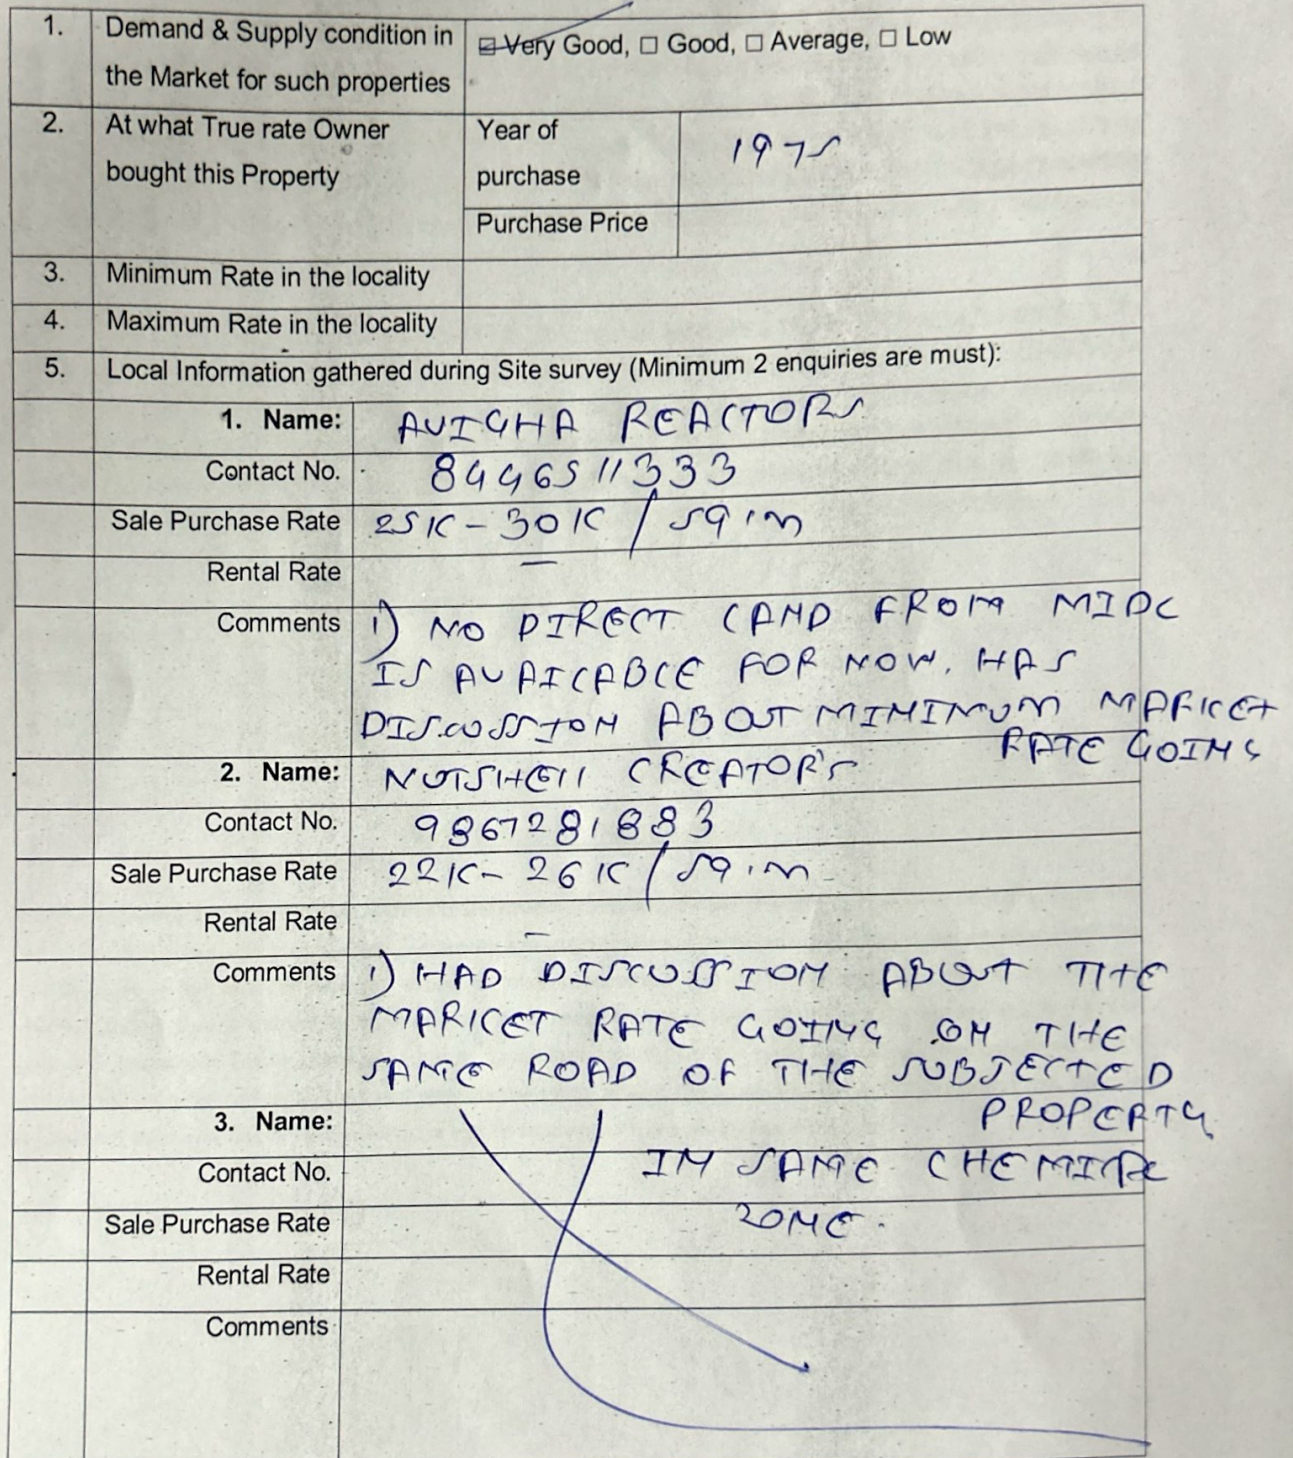 1. Demand & Supply condition in the Market for such properties ☑ Very Good, ☐ Good, ☐ Average, ☐ Low
2. At what True rate Owner bought this Property
Year of purchase 1975
Purchase Price
3. Minimum Rate in the locality
4. Maximum Rate in the locality
5. Local Information gathered during Site survey (Minimum 2 enquiries are must):
1. Name: AVIGHA REACTORS
Contact No. 8446511333
Sale Purchase Rate 25K - 30K / sq.m
Rental Rate —
Comments 1) NO DIRECT LAND FROM MIDC
IS AVAILABLE FOR NOW. HAS
DISCUSSION ABOUT MINIMUM MARKET
RATE GOING
2. Name: NUTSHELL CREATOR'S
Contact No. 9867281883
Sale Purchase Rate 22K - 26K / sq.m
Rental Rate —
Comments 1) HAD DISCUSSION ABOUT THE
MARKET RATE GOING ON THE
SAME ROAD OF THE SUBJECTED
PROPERTY
3. Name:
IN SAME CHEMICAL
Contact No.
ZONE.
Sale Purchase Rate
Rental Rate
Comments